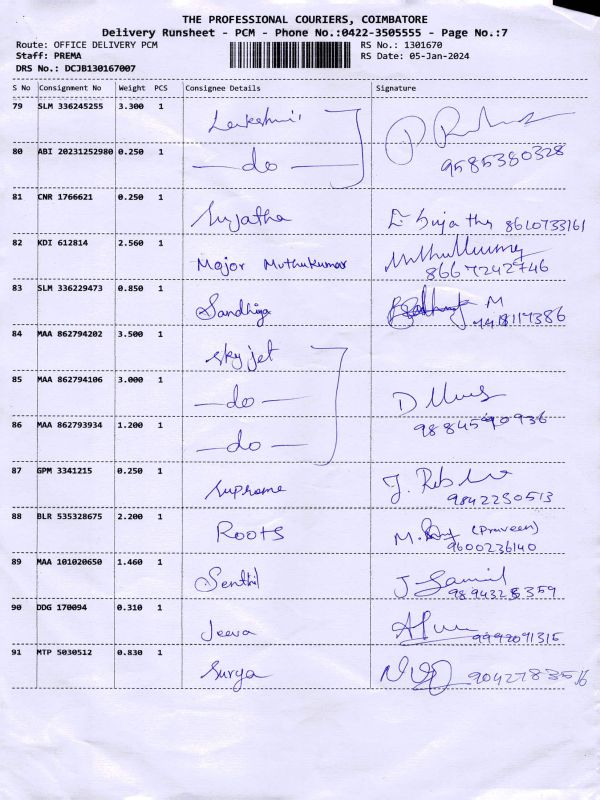 THE PROFESSIONAL COURIERS, COIMBATORE
Delivery Runsheet - PCM - Phone No.:0422-3505555 - Page No.:7
Route: OFFICE DELIVERY PCM RS No.: 1301670
Staff: PREMA RS Date: 05-Jan-2024
DRS No.: DCJB130167007
S No Consignment No Weight PCS Consignee Details Signature
79 SLM 336245255 3.300 1
80 ABI 20231252980 0.250 1 — do — 9585380328
81 CNR 1766621 0.250 1 Sujatha Sujatha 8610733161
82 KDI 612814 2.560 1 Major Muthukumar 8667242746
83 SLM 336229473 0.850 1 Sandhiya M
84 MAA 862794202 3.500 1 sky jet
85 MAA 862794106 3.000 1 — do — D
86 MAA 862793934 1.200 1 — do — 9884590936
87 GPM 3341215 0.250 1 supreme J. 9842250513
88 BLR 535328675 2.200 1 Roots M. (Praveen) 9600236140
89 MAA 101020650 1.460 1 Senthil J
90 DDG 170094 0.310 1 Jeeva
91 MTP 5030512 0.830 1 Surya 9042783516